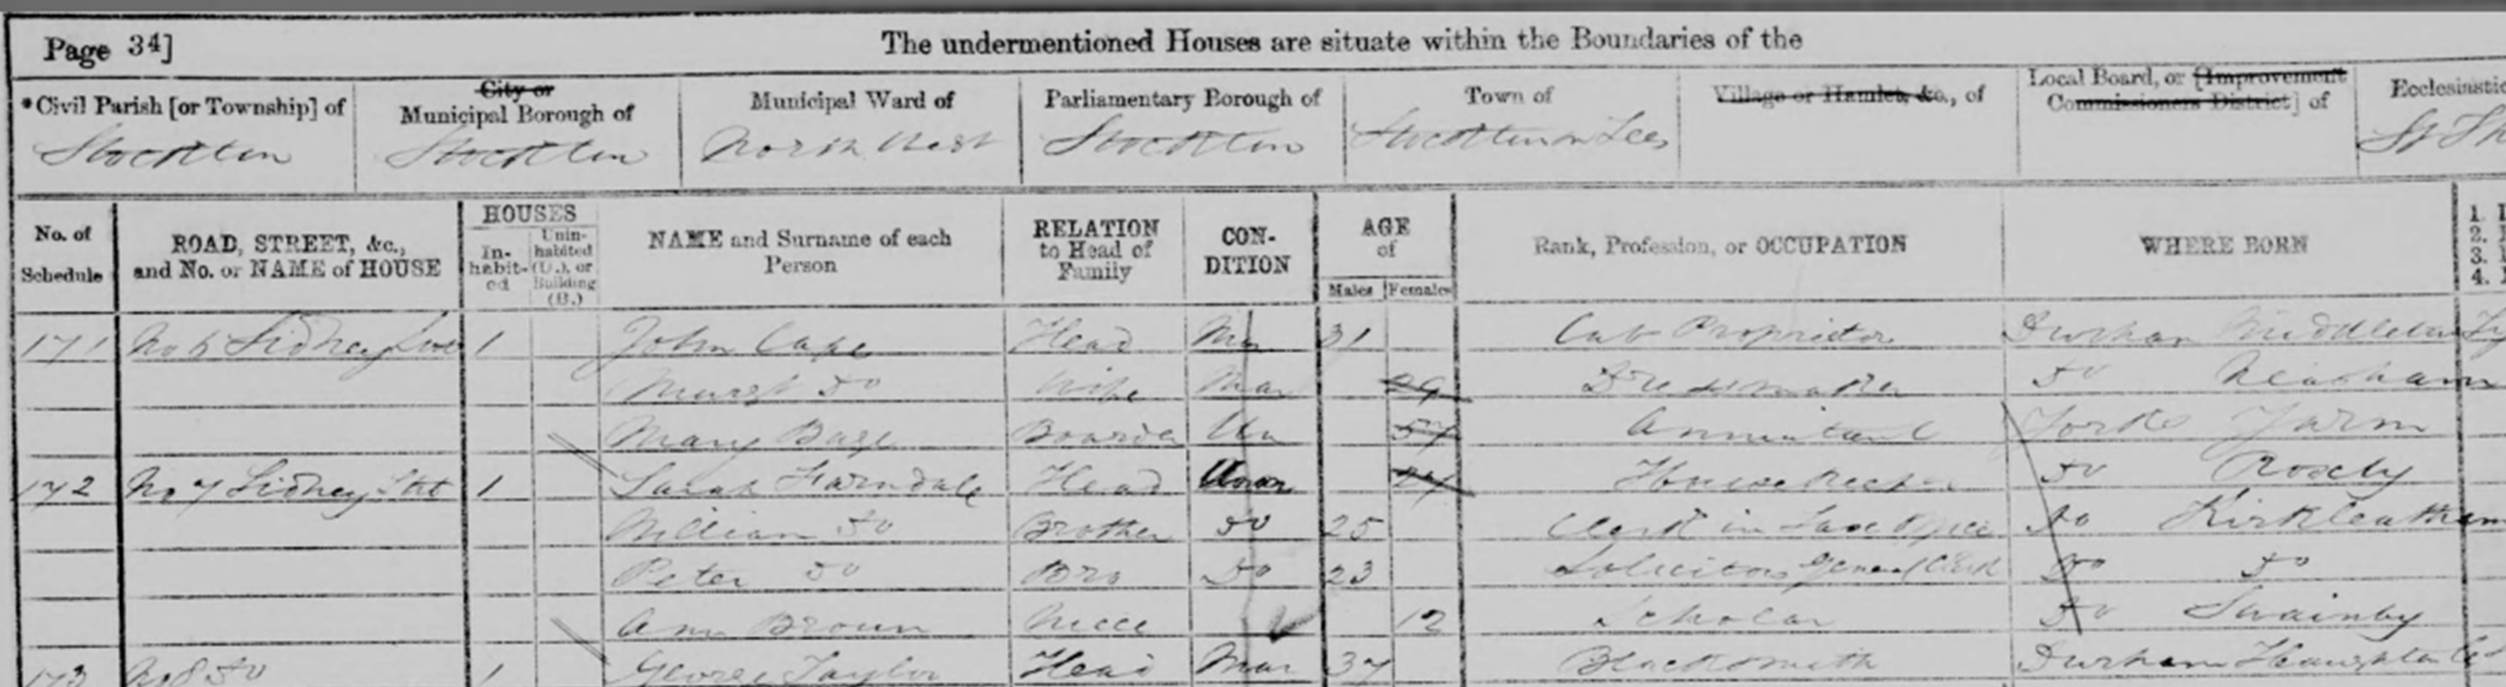 Page 34] The undermentioned Houses are situate within the Boundaries of the
*Civil Parish [or Township] of City or Municipal Borough of Municipal Ward of Parliamentary Borough of Town of Village or Hamlet, &c., of Local Board, or [Improvement Commissioners District] of Ecclesiastic
Stockton Stockton North West Stockton Stockton on Tees St Th
No. of Schedule ROAD, STREET, &c., and No. or NAME of HOUSE HOUSES In-habit-ed Unin-habited (U.), or Building (B.) NAME and Surname of each Person RELATION to Head of Family CON-DITION AGE of Males Females Rank, Profession, or OCCUPATION WHERE BORN 1. 2. 3. 4.
171 No 6 Sidney 1 John Cape Head Mar 31 Cab Proprietor Durham Middleton
Margt Do Wife Mar 29 Dressmaker Do Neasham
Mary Boarder Un 57 Annuitant Yorks Yarm
172 No 7 Sidney Stt 1 Sarah Farndale Head Unm Housekeeper Do Roxby
William Do Brother Do 25 Clerk in Do Kirkleatham
Peter Do Bro Do 23 Solicitors General Clerk Do Do
Ann Brown Niece 12 Scholar Do Swainby
173 No 8 Do 1 George Taylor Head Mar 37 Blacksmith Durham